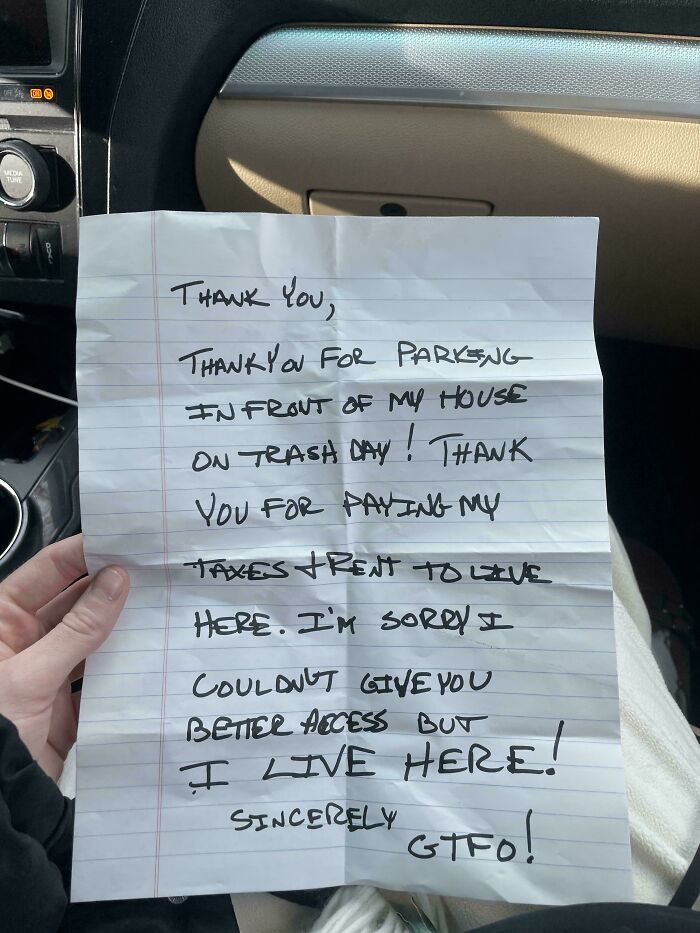 MEDIA
TUNE
THANK YOU,
THANK YOU FOR PARKING
IN FRONT OF MY HOUSE
ON TRASH DAY! THANK
YOU FOR PAYING MY
TAXES & RENT TO LIVE
HERE. I'M SORRY I
COULDN'T GIVE YOU
BETTER ACCESS BUT
I LIVE HERE!
SINCERELY
GTFO!